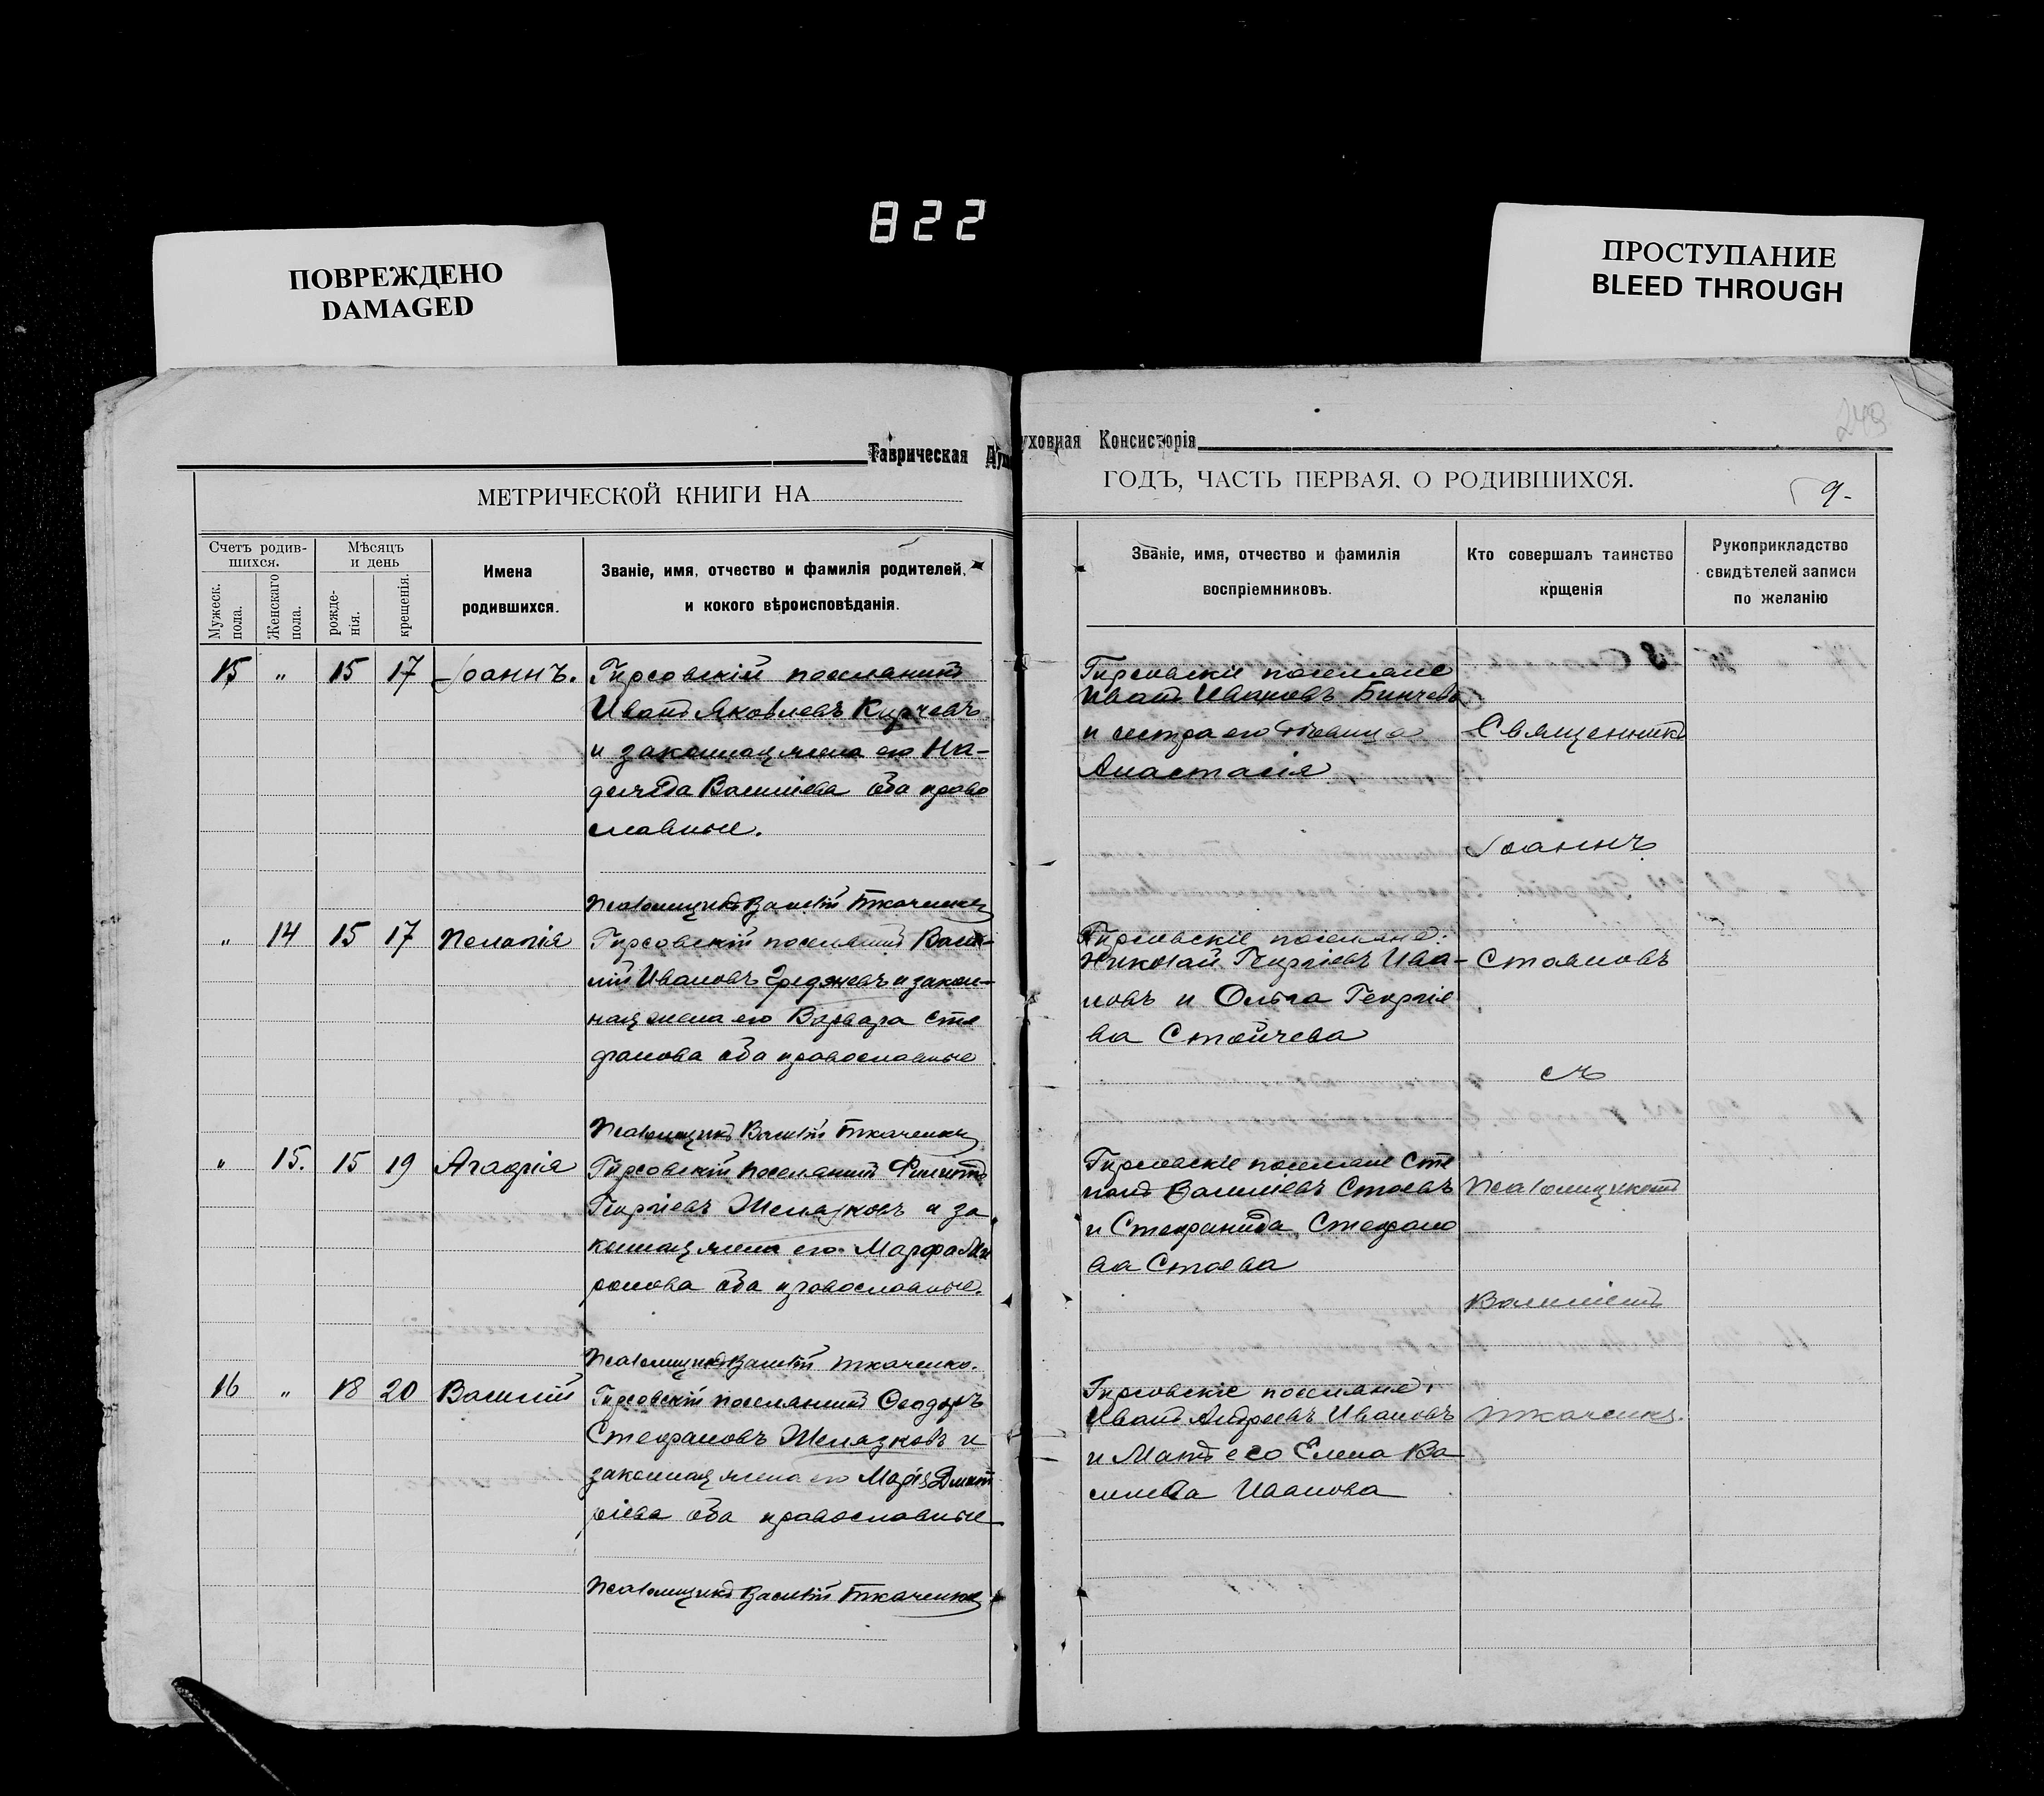 822
ПОВРЕЖДЕНО
DAMAGED
ПРОСТУПАНИЕ
BLEED THROUGH
249
Таврическая Духовная Консисторія
МЕТРИЧЕСКОЙ КНИГИ НА
ГОДЪ, ЧАСТЬ ПЕРВАЯ, О РОДИВШИХСЯ.
9-
Счетъ родив-
шихся.
Мужеск.
пола.
Женскаго
пола.
Мѣсяцъ
и день
рожде-
нія.
крещенія.
Имена
родившихся.
Званіе, имя, отчество и фамилія родителей,
и кокого вѣроисповѣданія.
Званіе, имя, отчество и фамилія
воспріемниковъ.
Кто совершалъ таинство
крщенія
Рукоприкладство
свидѣтелей записи
по желанію
15 " 15 17 Іоаннъ.
Гирсовскій поселянинъ
Иванъ Яковлевъ Кирчевъ
и законная жена его На-
дежда Васильева оба право
славные.
Псаломщикъ Василій Ткаченко
Гирсовскіе поселяне
Иванъ Ивановъ Бинчевъ
и сестра его дѣвица
Анастасія
" 14 15 17 Пелагія
Гирсовскій поселянинъ Васи-
лій Ивановъ Греджевъ и закон-
ная жена его Варвара Сте
фанова оба православные
Псаломщикъ Василій Ткаченко
Гирсовскіе поселяне:
Николай Георгіевъ Ива-
новъ и Ольга Георгіе
ва Стойчева
" 15. 15 19 Агафія
Гирсовскій поселянинъ Филиппъ
Георгіевъ Желязковъ и за
конная жена его Марфа Ми
ронова оба православные.
Псаломщикъ Василій Ткаченко.
Гирсовскіе поселяне Сте
панъ Васильевъ Стоевъ
и Стефанида Стефано
ва Стоева
16 " 18 20 Василій
Гирсовскій поселянинъ Ѳеодоръ
Стефановъ Желязковъ и
законная жена его Марія Дмит
ріева оба православные
Псаломщикъ Василій Ткаченко
Гирсовскіе поселяне:
Иванъ Андреевъ Ивановъ
и Мать его Елена Ва
сильева Иванова
Священникъ
Іоаннъ
Стояновъ
съ
Псаломщикомъ
Василіемъ
Ткаченко.